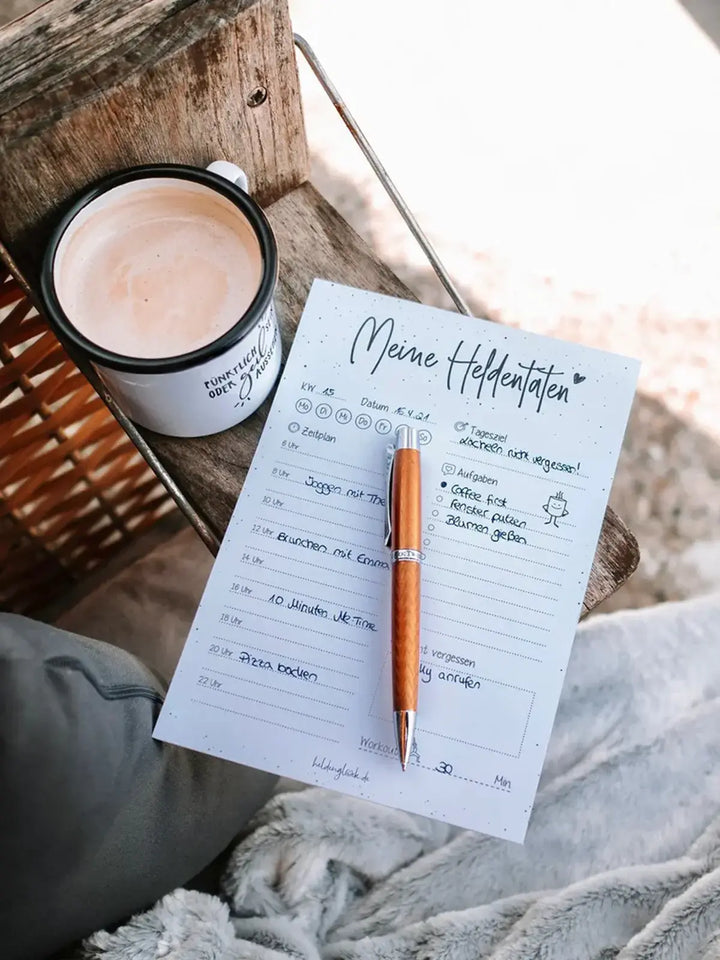 PÜNKTLICH
ODER
AUSSEH
Meine Heldentaten
KW 15 Datum 15.4.21
Mo Di Mi Do Fr So
Zeitplan
6 Uhr
8 Uhr Joggen mit
10 Uhr
12 Uhr Brunchen mit Emma
14 Uhr
16 Uhr 10 Minuten Me-Time
18 Uhr
20 Uhr Pizza backen
22 Uhr
Tagesziel
Lächeln nicht vergessen!
Aufgaben
Coffee first
Fenster putzen
Blumen gießen
vergessen
anrufen
Workout 30 Min
heldenglueck.de